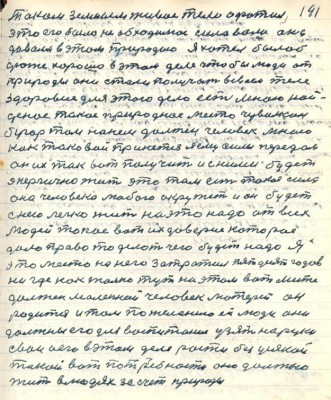 141
таком земным живое тело аратил,
это его было не обходимое сила воли она
давала в этом природию Я хотел было б
даже хорошо в этом деле чтобы люди от
природы они стали получать в своем теле
здоровие для этого дело есть мною най-
деное такое природное место чувилкин
бугор там на нем должен человек много
как таковой принется я ещё сили передам
он их так вот получит и с ними будет
энергично жить это там есть такая сила
она человека любого окружит и он будет
с нею легко жить на это надо от всех
людей такое вот их доверие которая
дало право то делат чего будет надо Я
это место на него затратил пятдесят годов
ни где как только тут на этом вот месте
должен маленкой человек матерей он
родится и там по желанию ей люди они
должны его для воспитания узят на руки
свои его в этом деле рости без усякой
такой вот потребности оно должно
жить в людях за счет природы